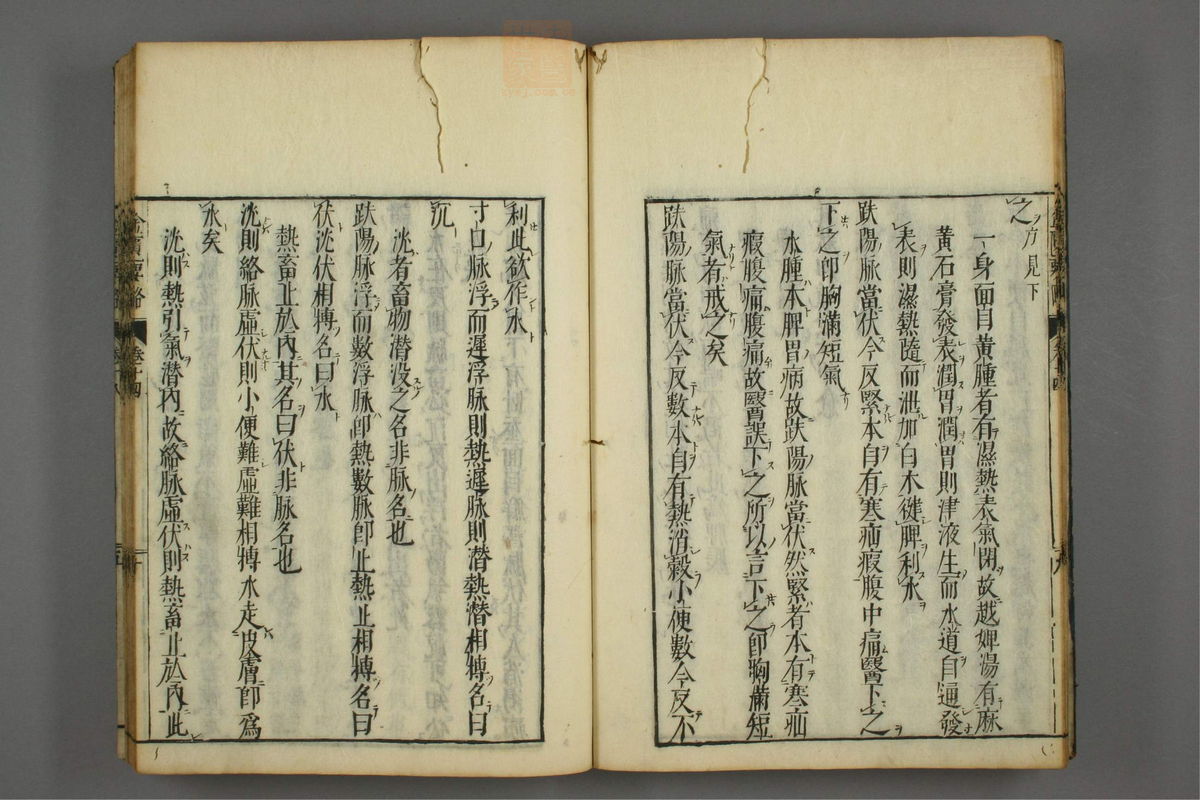 之方見下
一身面目黄腫者有濕熱表氣閉故越婢湯有麻
黄石膏發表潤胃潤胃則津液生而水道自通發
表則濕熱隨而泄加白木健脾利水
趺陽脈當伏今反緊本自有寒疝瘕腹中痛醫下之
下之卽胸滿短氣
水腫本脾胃病故趺陽脈當伏然緊者本有寒疝
瘕腹痛腹痛故醫誤下之所以言下之卽胸滿短
氣者戒之矣
趺陽脈當伏今反數本自有熱消穀小便數今反不
利此欲作水
寸口脈浮而遲浮脈則熱遲脈則潜熱潜相搏名曰
沉
沈者畜物潜没之名非脈名也
趺陽脈浮而數浮脈卽熱數脈卽止熱止相搏名曰
伏沈伏相搏名曰水
熱畜止於内其名曰伏非脈名也
沈則絡脈虛伏則小便難虛難相搏水走皮膚卽爲
水矣
沈則熱引氣潜内故絡脈虛伏則熱畜止於内此
金匱要略
卷十四